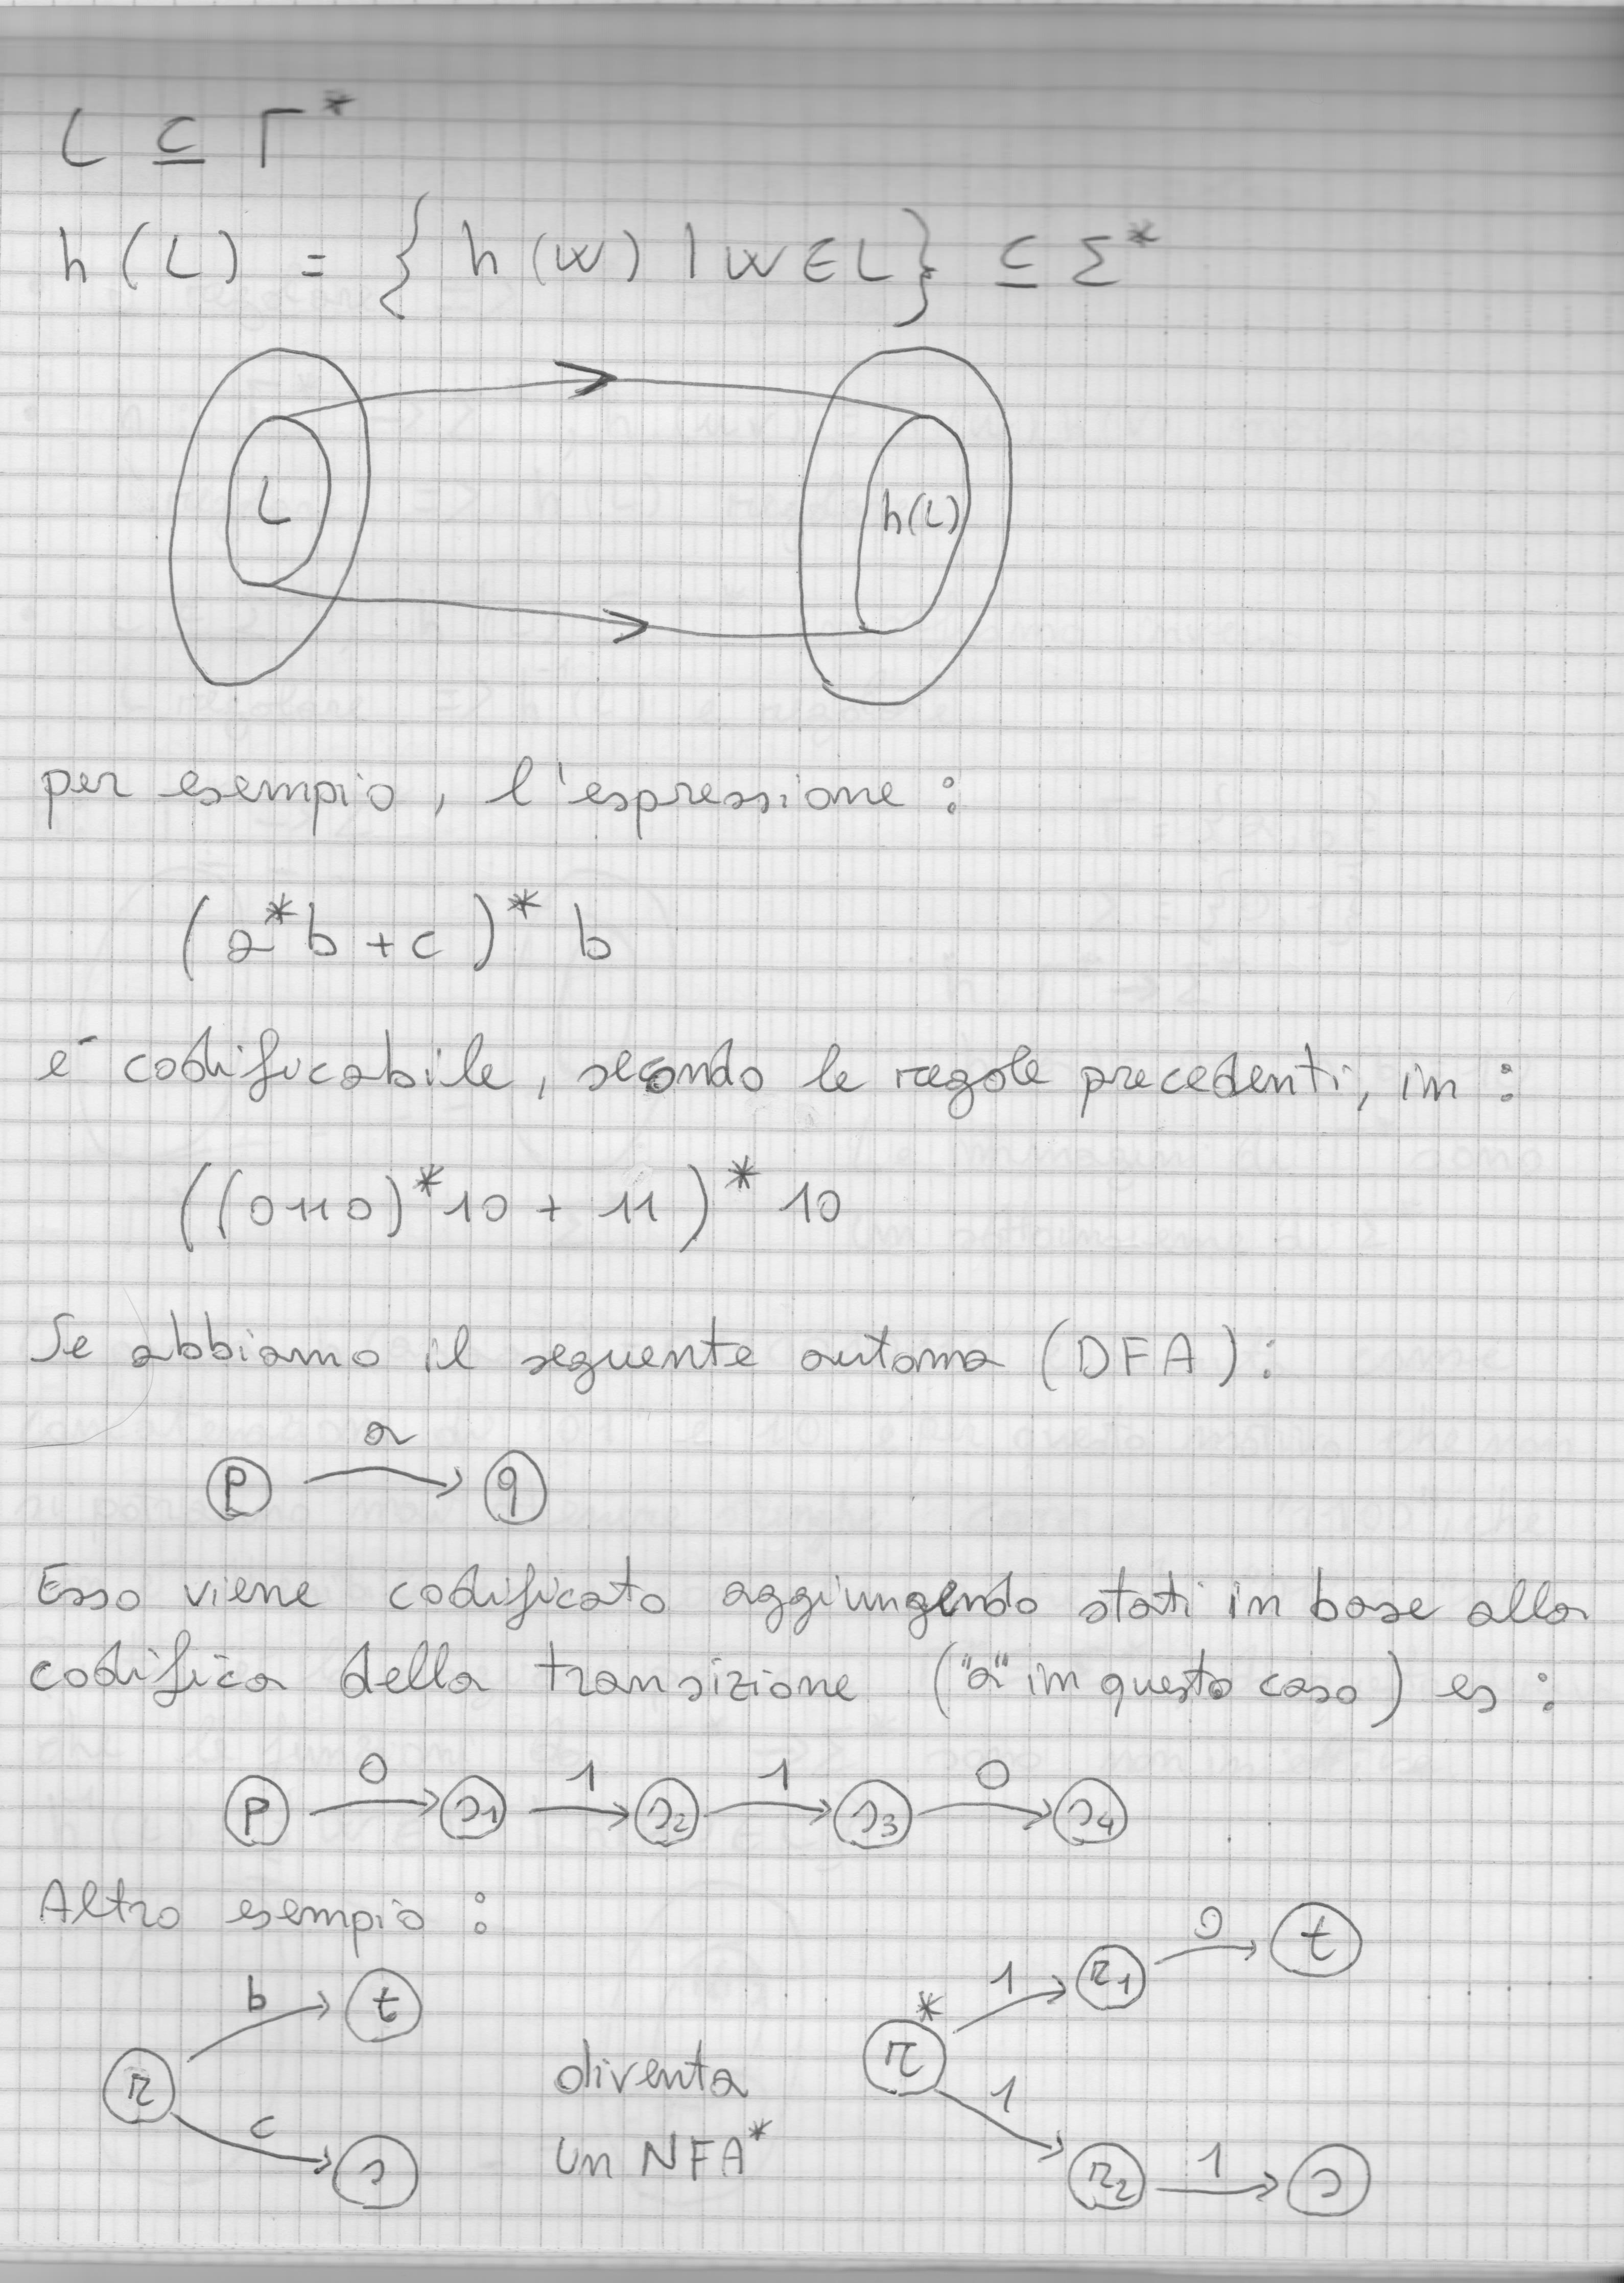 L ⊆ Γ*
h(L) = { h(w) | w ∈ L } ⊆ Σ*
L
h(L)
per esempio, l'espressione :
(a*b + c)* b
é codificabile, secondo le regole precedenti, in :
((0110)*10 + 11)* 10
Se abbiamo il seguente automa (DFA) :
a
p q
Esso viene codificato aggiungendo stati in base alla
codifica della transizione ("a" in questo caso) es :
0 1 1 0
p s1 s2 s3 s4
Altro esempio :
b t
r
c s
diventa
un NFA*
1 r1 0 t
r*
1 r2 1 s